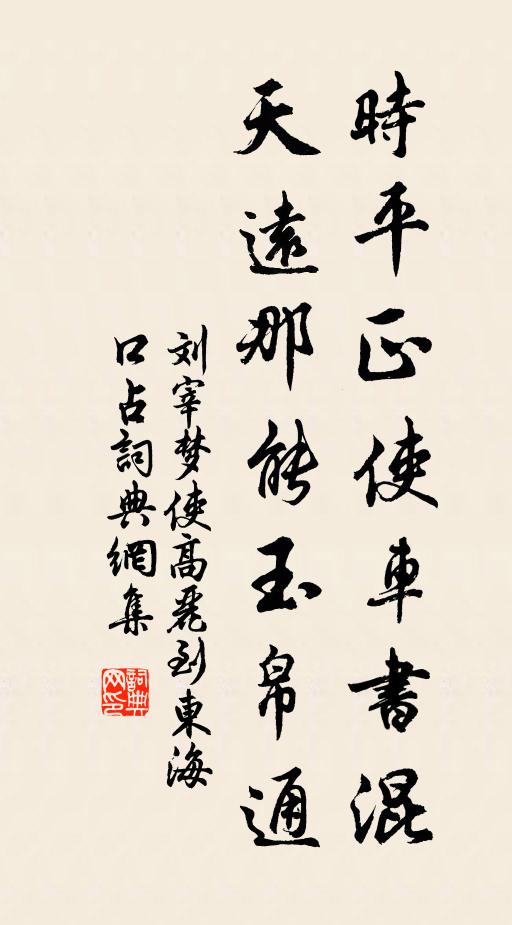 時平正使車書混
天遠那能玉帛通
刘宰梦使高麗到東海
口占詞典網集
詞典网印